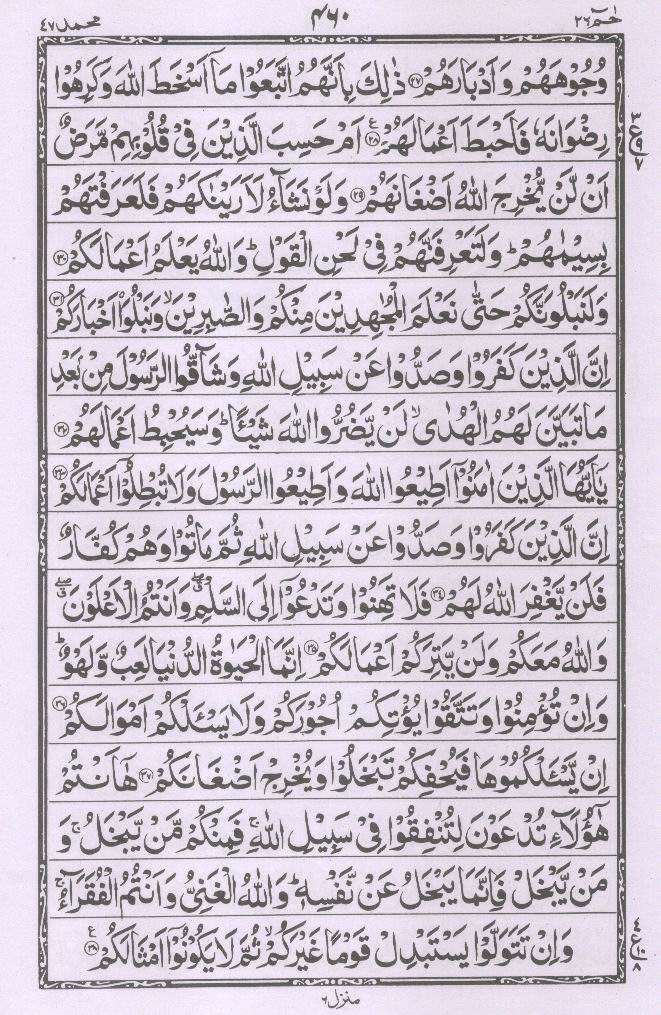 حٰمٓ ٢٦
٤٦٠
محمد ٤٧
وُجُوْهَهُمْ وَ اَدْبَارَهُمْ ۝٢٧ ذٰلِكَ بِاَنَّهُمُ اتَّبَعُوْا مَاۤ اَسْخَطَ اللّٰهَ وَ كَرِهُوْا
رِضْوَانَهٗ فَاَحْبَطَ اَعْمَالَهُمْ ۝٢٨ ع اَمْ حَسِبَ الَّذِيْنَ فِيْ قُلُوْبِهِمْ مَّرَضٌ
٣ ع ٩ ٧
اَنْ لَّنْ يُّخْرِجَ اللّٰهُ اَضْغَانَهُمْ ۝٢٩ وَ لَوْ نَشَآءُ لَاَرَيْنٰكَهُمْ فَلَعَرَفْتَهُمْ
بِسِيْمٰىهُمْ ؕ وَ لَتَعْرِفَنَّهُمْ فِيْ لَحْنِ الْقَوْلِ ؕ وَ اللّٰهُ يَعْلَمُ اَعْمَالَكُمْ ۝٣٠
وَ لَنَبْلُوَنَّكُمْ حَتّٰى نَعْلَمَ الْمُجٰهِدِيْنَ مِنْكُمْ وَ الصّٰبِرِيْنَ ۙ وَ نَبْلُوَا۠ اَخْبَارَكُمْ ۝٣١
اِنَّ الَّذِيْنَ كَفَرُوْا وَ صَدُّوْا عَنْ سَبِيْلِ اللّٰهِ وَ شَآقُّوا الرَّسُوْلَ مِنْ بَعْدِ
مَا تَبَيَّنَ لَهُمُ الْهُدٰى ۙ لَنْ يَّضُرُّوا اللّٰهَ شَيْـًٔا ؕ وَ سَيُحْبِطُ اَعْمَالَهُمْ ۝٣٢
يٰۤاَيُّهَا الَّذِيْنَ اٰمَنُوْۤا اَطِيْعُوا اللّٰهَ وَ اَطِيْعُوا الرَّسُوْلَ وَ لَا تُبْطِلُوْۤا اَعْمَالَكُمْ ۝٣٣
اِنَّ الَّذِيْنَ كَفَرُوْا وَ صَدُّوْا عَنْ سَبِيْلِ اللّٰهِ ثُمَّ مَاتُوْا وَ هُمْ كُفَّارٌ
فَلَنْ يَّغْفِرَ اللّٰهُ لَهُمْ ۝٣٤ فَلَا تَهِنُوْا وَ تَدْعُوْۤا اِلَى السَّلْمِ ۖۗ وَ اَنْتُمُ الْاَعْلَوْنَ ۖۗ
وَ اللّٰهُ مَعَكُمْ وَ لَنْ يَّتِرَكُمْ اَعْمَالَكُمْ ۝٣٥ اِنَّمَا الْحَيٰوةُ الدُّنْيَا لَعِبٌ وَّ لَهْوٌ ؕ
وَ اِنْ تُؤْمِنُوْا وَ تَتَّقُوْا يُؤْتِكُمْ اُجُوْرَكُمْ وَ لَا يَسْـَٔلْكُمْ اَمْوَالَكُمْ ۝٣٦
اِنْ يَّسْـَٔلْكُمُوْهَا فَيُحْفِكُمْ تَبْخَلُوْا وَ يُخْرِجْ اَضْغَانَكُمْ ۝٣٧ هٰۤاَنْتُمْ
هٰۤؤُلَآءِ تُدْعَوْنَ لِتُنْفِقُوْا فِيْ سَبِيْلِ اللّٰهِ ۚ فَمِنْكُمْ مَّنْ يَّبْخَلُ ۚ وَ
مَنْ يَّبْخَلْ فَاِنَّمَا يَبْخَلُ عَنْ نَّفْسِهٖ ؕ وَ اللّٰهُ الْغَنِيُّ وَ اَنْتُمُ الْفُقَرَآءُ ۚ
وَ اِنْ تَتَوَلَّوْا يَسْتَبْدِلْ قَوْمًا غَيْرَكُمْ ۙ ثُمَّ لَا يَكُوْنُوْۤا اَمْثَالَكُمْ ۝٣٨ ع
٤ ع ١٠ ٨
منزل ٦